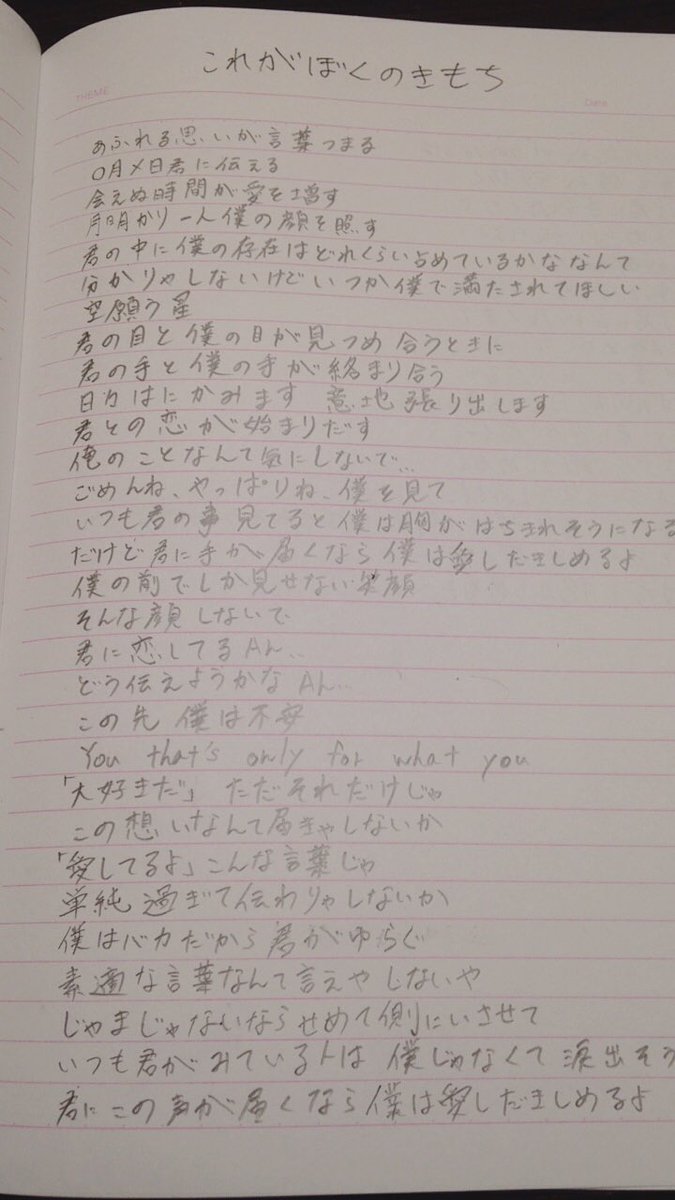 これがぼくのきもち
THEME
Date
あふれる思いが言葉つまる
〇月〆日君に伝える
会えぬ時間が愛を増す
月明かり一人僕の顔を照す
君の中に僕の存在はどれくらい占めているかななんて
分かりゃしないけどいつか僕で満たされてほしい
空願う星
君の目と僕の目が見つめ合うときに
君の手と僕の手が絡まり合う
はにかみます 意地張り出します
君との恋が始まりだす
俺のことなんて気にしないで…
ごめんね、やっぱりね、僕を見て
いつも君の事見てると僕は胸がはちきれそうになる
だけど君に手が届くなら僕は愛しだきしめるよ
僕の前でしか見せない笑顔
そんな顔しないで
君に恋してるAh…
どう伝えようかなAh…
この先 僕は不安
You that's only for what you
「大好きだ」ただそれだけじゃ
この想いなんて届きゃしないか
「愛してるよ」こんな言葉じゃ
単純過ぎて伝わりゃしないか
僕はバカだから君がゆらぐ
素適な言葉なんて言えやしないや
じゃまじゃないならせめて側にいさせて
いつも君がみている人は僕じゃなくて涙出そう
君にこの声が届くなら僕は愛しだきしめるよ